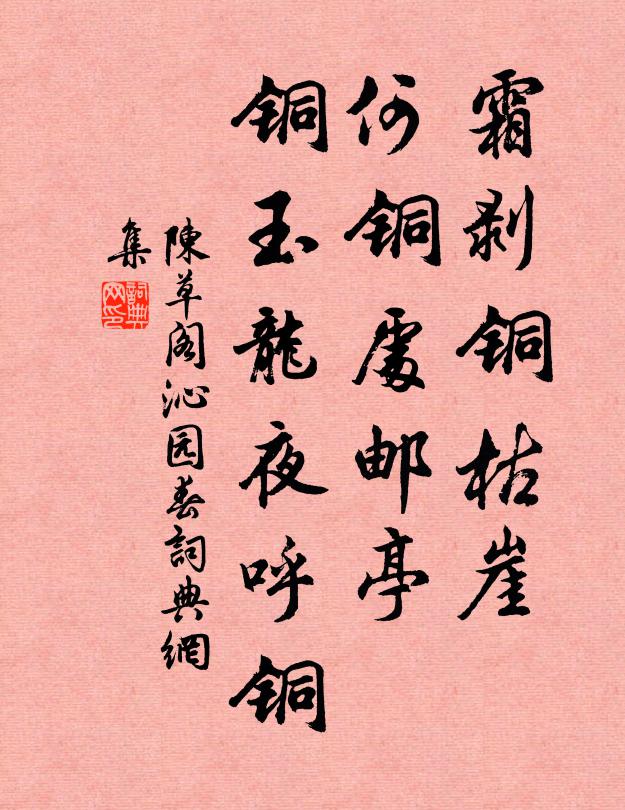 霜剥铜枯崖
何铜處邮亭
铜玉龍夜呼铜
陳草阁沁园春詞典網
集
詞典网印